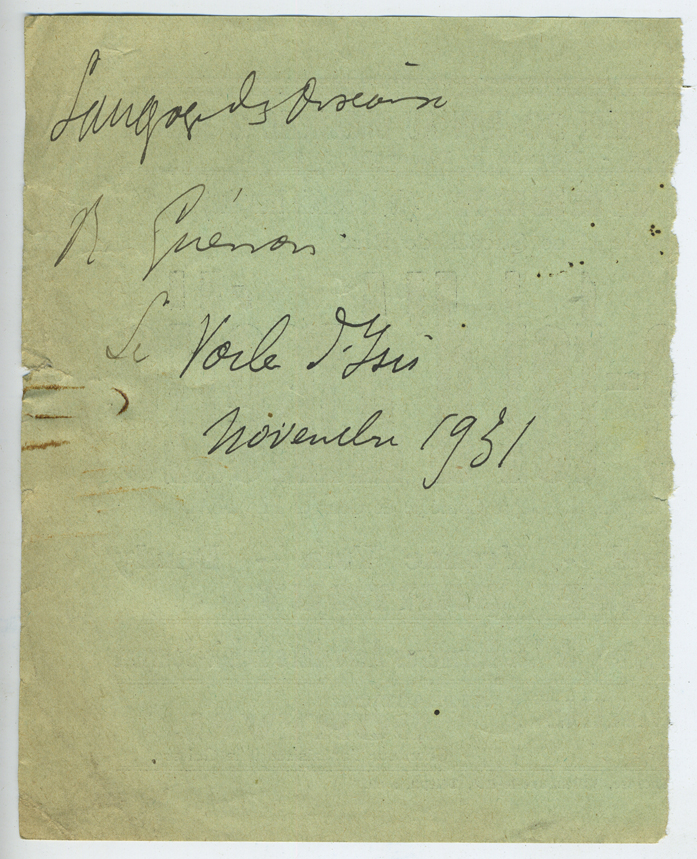 Langage des oiseaux
R Guénon
Le Voile d'Isis
Novembre 1931